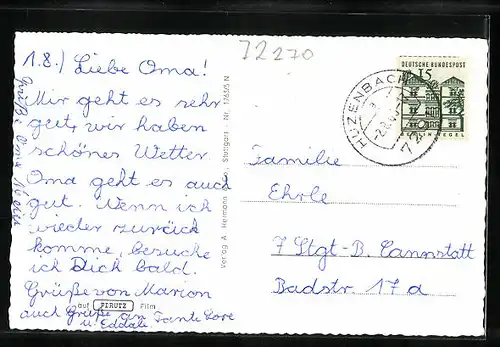 72270
1.8.) Liebe Oma!
Mir geht es sehr
gut, wir haben
schönes Wetter
Oma geht es auch
gut. Wenn ich
wieder zurück
komme, besuche
ich Dich bald.
Grüße von Marion
auch Grüße an Tante Lore
u. Eddale
Grüße Oma
auf PERUTZ Film
Verlag A. Hermann Co., Stuttgart Nr. 17655 N
DEUTSCHE BUNDESPOST
15
TEGEL
HUZENBACH
Familie
Ehrle
7 Stgt-B. Cannstatt
Badstr. 17 a